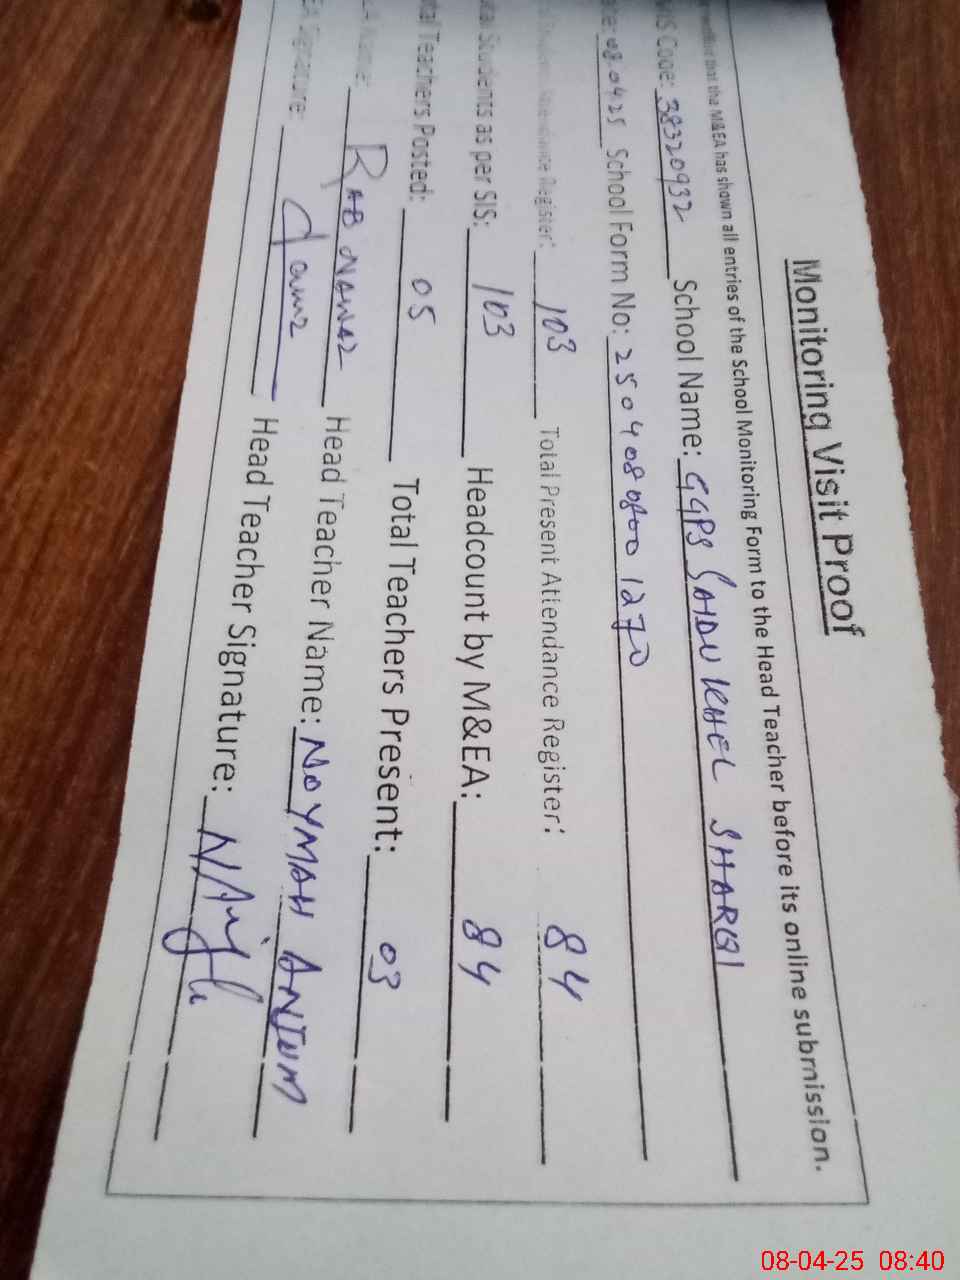 Monitoring Visit Proof
that the M&EA has shown all entries of the School Monitoring Form to the Head Teacher before its online submission.
Code: 38320932 School Name: GGPS SAIDU KHEL SHARQI
08.0425 School Form No: 250408080001270
Register: 103 Total Present Attendance Register: 84
Students as per SIS: 103 Headcount by M&EA: 84
Teachers Posted: 05 Total Teachers Present: 03
Name: RAB NAWAZ Head Teacher Name: NOYMAH ANJUM
Signature: Head Teacher Signature:
08-04-25 08:40